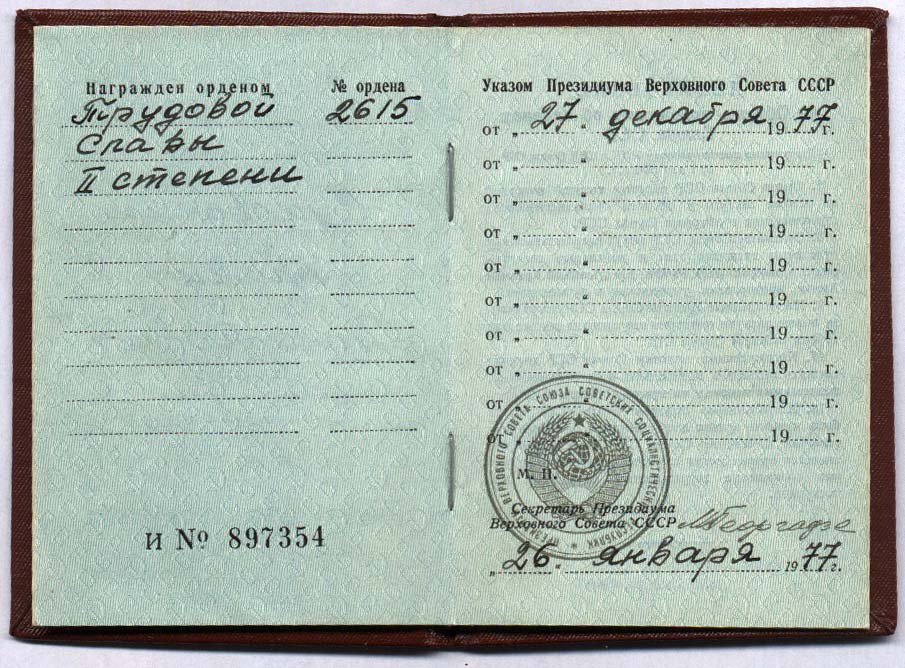 Награжден орденом
№ ордена
Трудовой
2615
Славы
II степени
И № 897354
Указом Президиума Верховного Совета СССР
от „ 27 “ декабря 1977 г.
от „ “ 19 г.
от „ “ 19 г.
от „ “ 19 г.
от „ “ 19 г.
от „ “ 19 г.
от „ “ 19 г.
от „ “ 19 г.
от „ “ 19 г.
от „ “ 19 г.
ПРЕЗИДИУМ ВЕРХОВНОГО СОВЕТА СОЮЗА СОВЕТСКИХ СОЦИАЛИСТИЧЕСКИХ РЕСПУБЛИК
М. П.
Секретарь Президиума
Верховного Совета СССР МГеоргадзе
„ 26 “ января 1977 г.